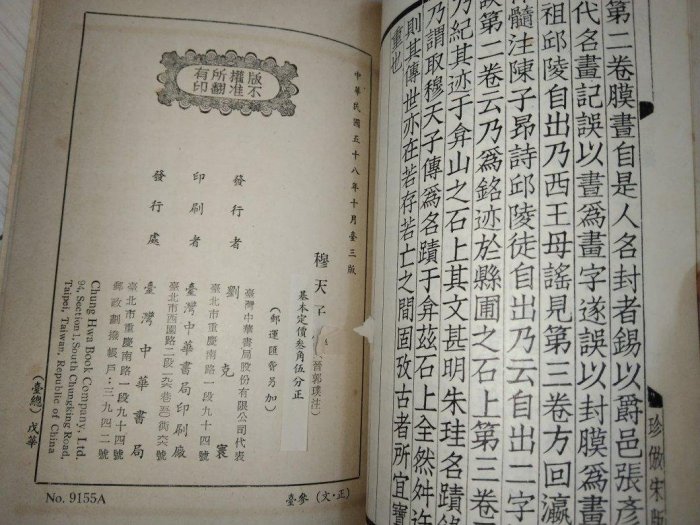 第二卷膜晝自是人名封者錫以爵邑張彥
代名畫記誤以晝爲畫字遂誤以封膜爲畫
祖邱陵自出乃西王母謠見第三卷方回瀛
髓注陳子昂詩邱陵徒自出乃云自出二字
第二卷云乃爲銘迹於縣圃之石上第三卷
乃紀其迹于弇山之石上其文甚明朱珪名蹟
乃謂取穆天子傳爲名蹟于弇茲石上全然舛
則其傳世亦在若存若亡之間固攷古者所宜寶
重也
珍倣宋版
版權所有
不准翻印
中華民國五十八年十月臺三版
穆天子
(晉郭璞注)
基本定價叁角伍分正
(郵運匯費另加)
發行者
臺灣中華書局股份有限公司代表
劉克寰
臺北市重慶南路一段九十四號
印刷者
臺灣中華書局印刷廠
發行處
臺灣中華書局
臺北市重慶南路一段九十四號
郵政劃撥帳戶:三九四二號
Chung Hwa Book Company, Ltd.
94, Section 1, South Chungking Road,
Taipei, Taiwan, Republic of China
(臺總)戊華
No. 9155A
臺參(文·正)